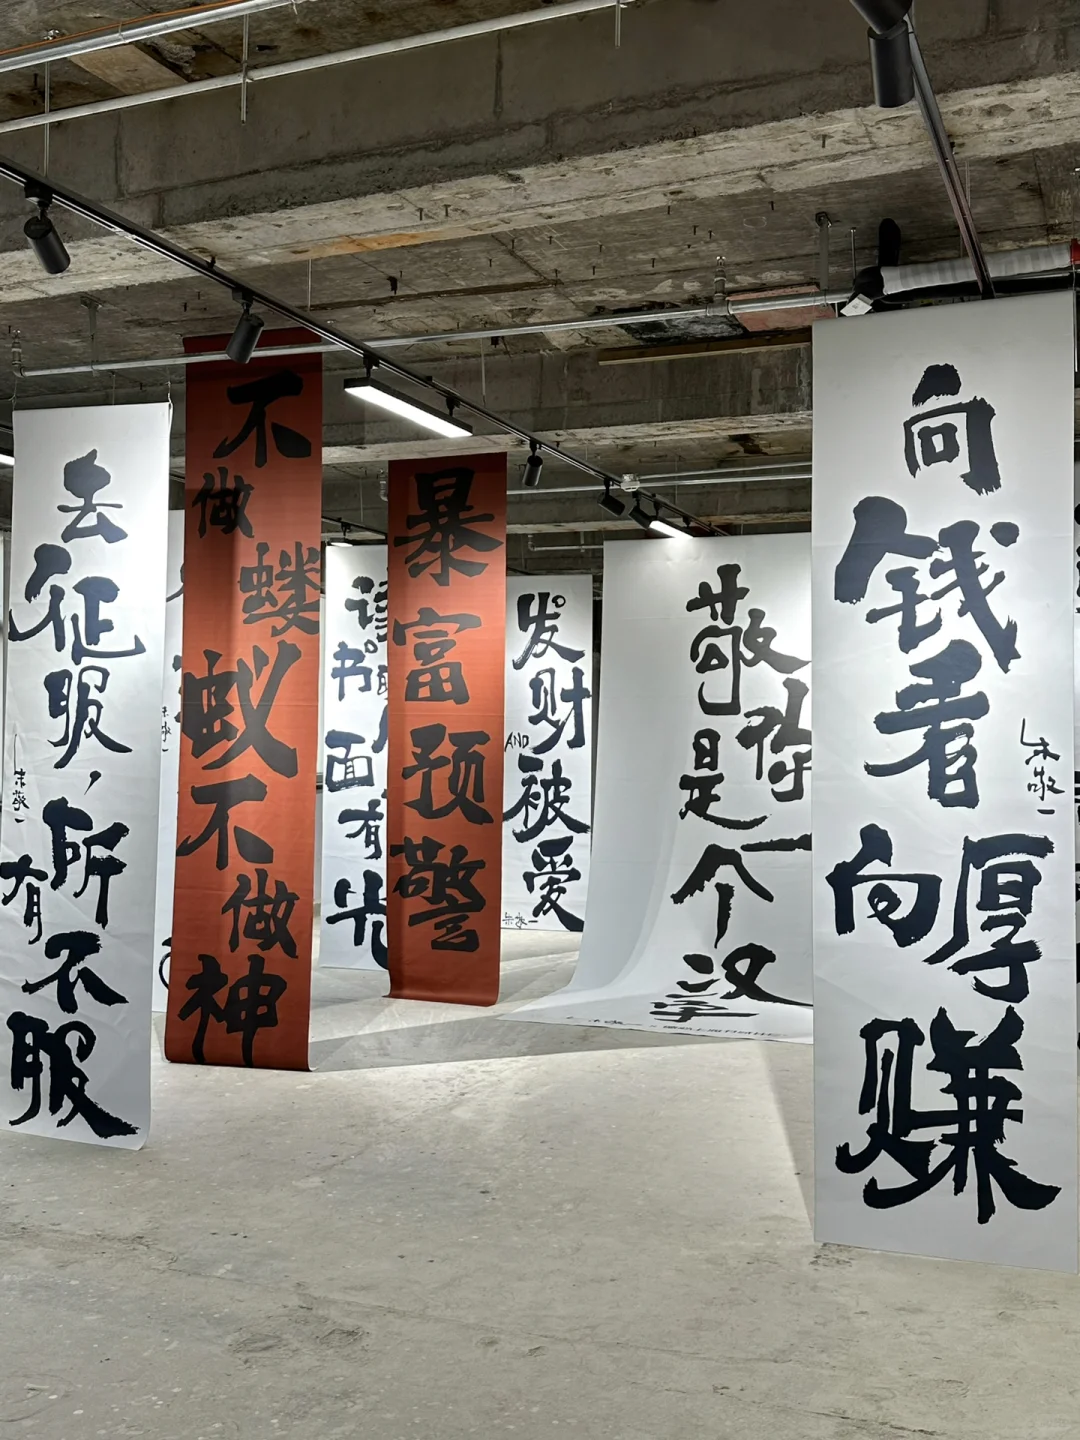 去征服，所有不服
朱敬一
不做蝼蚁不做神
读书
面有光
暴富预警
发财
AND
被爱
朱敬一
敬你是一个汉字
向钱看
向厚赚
朱敬一